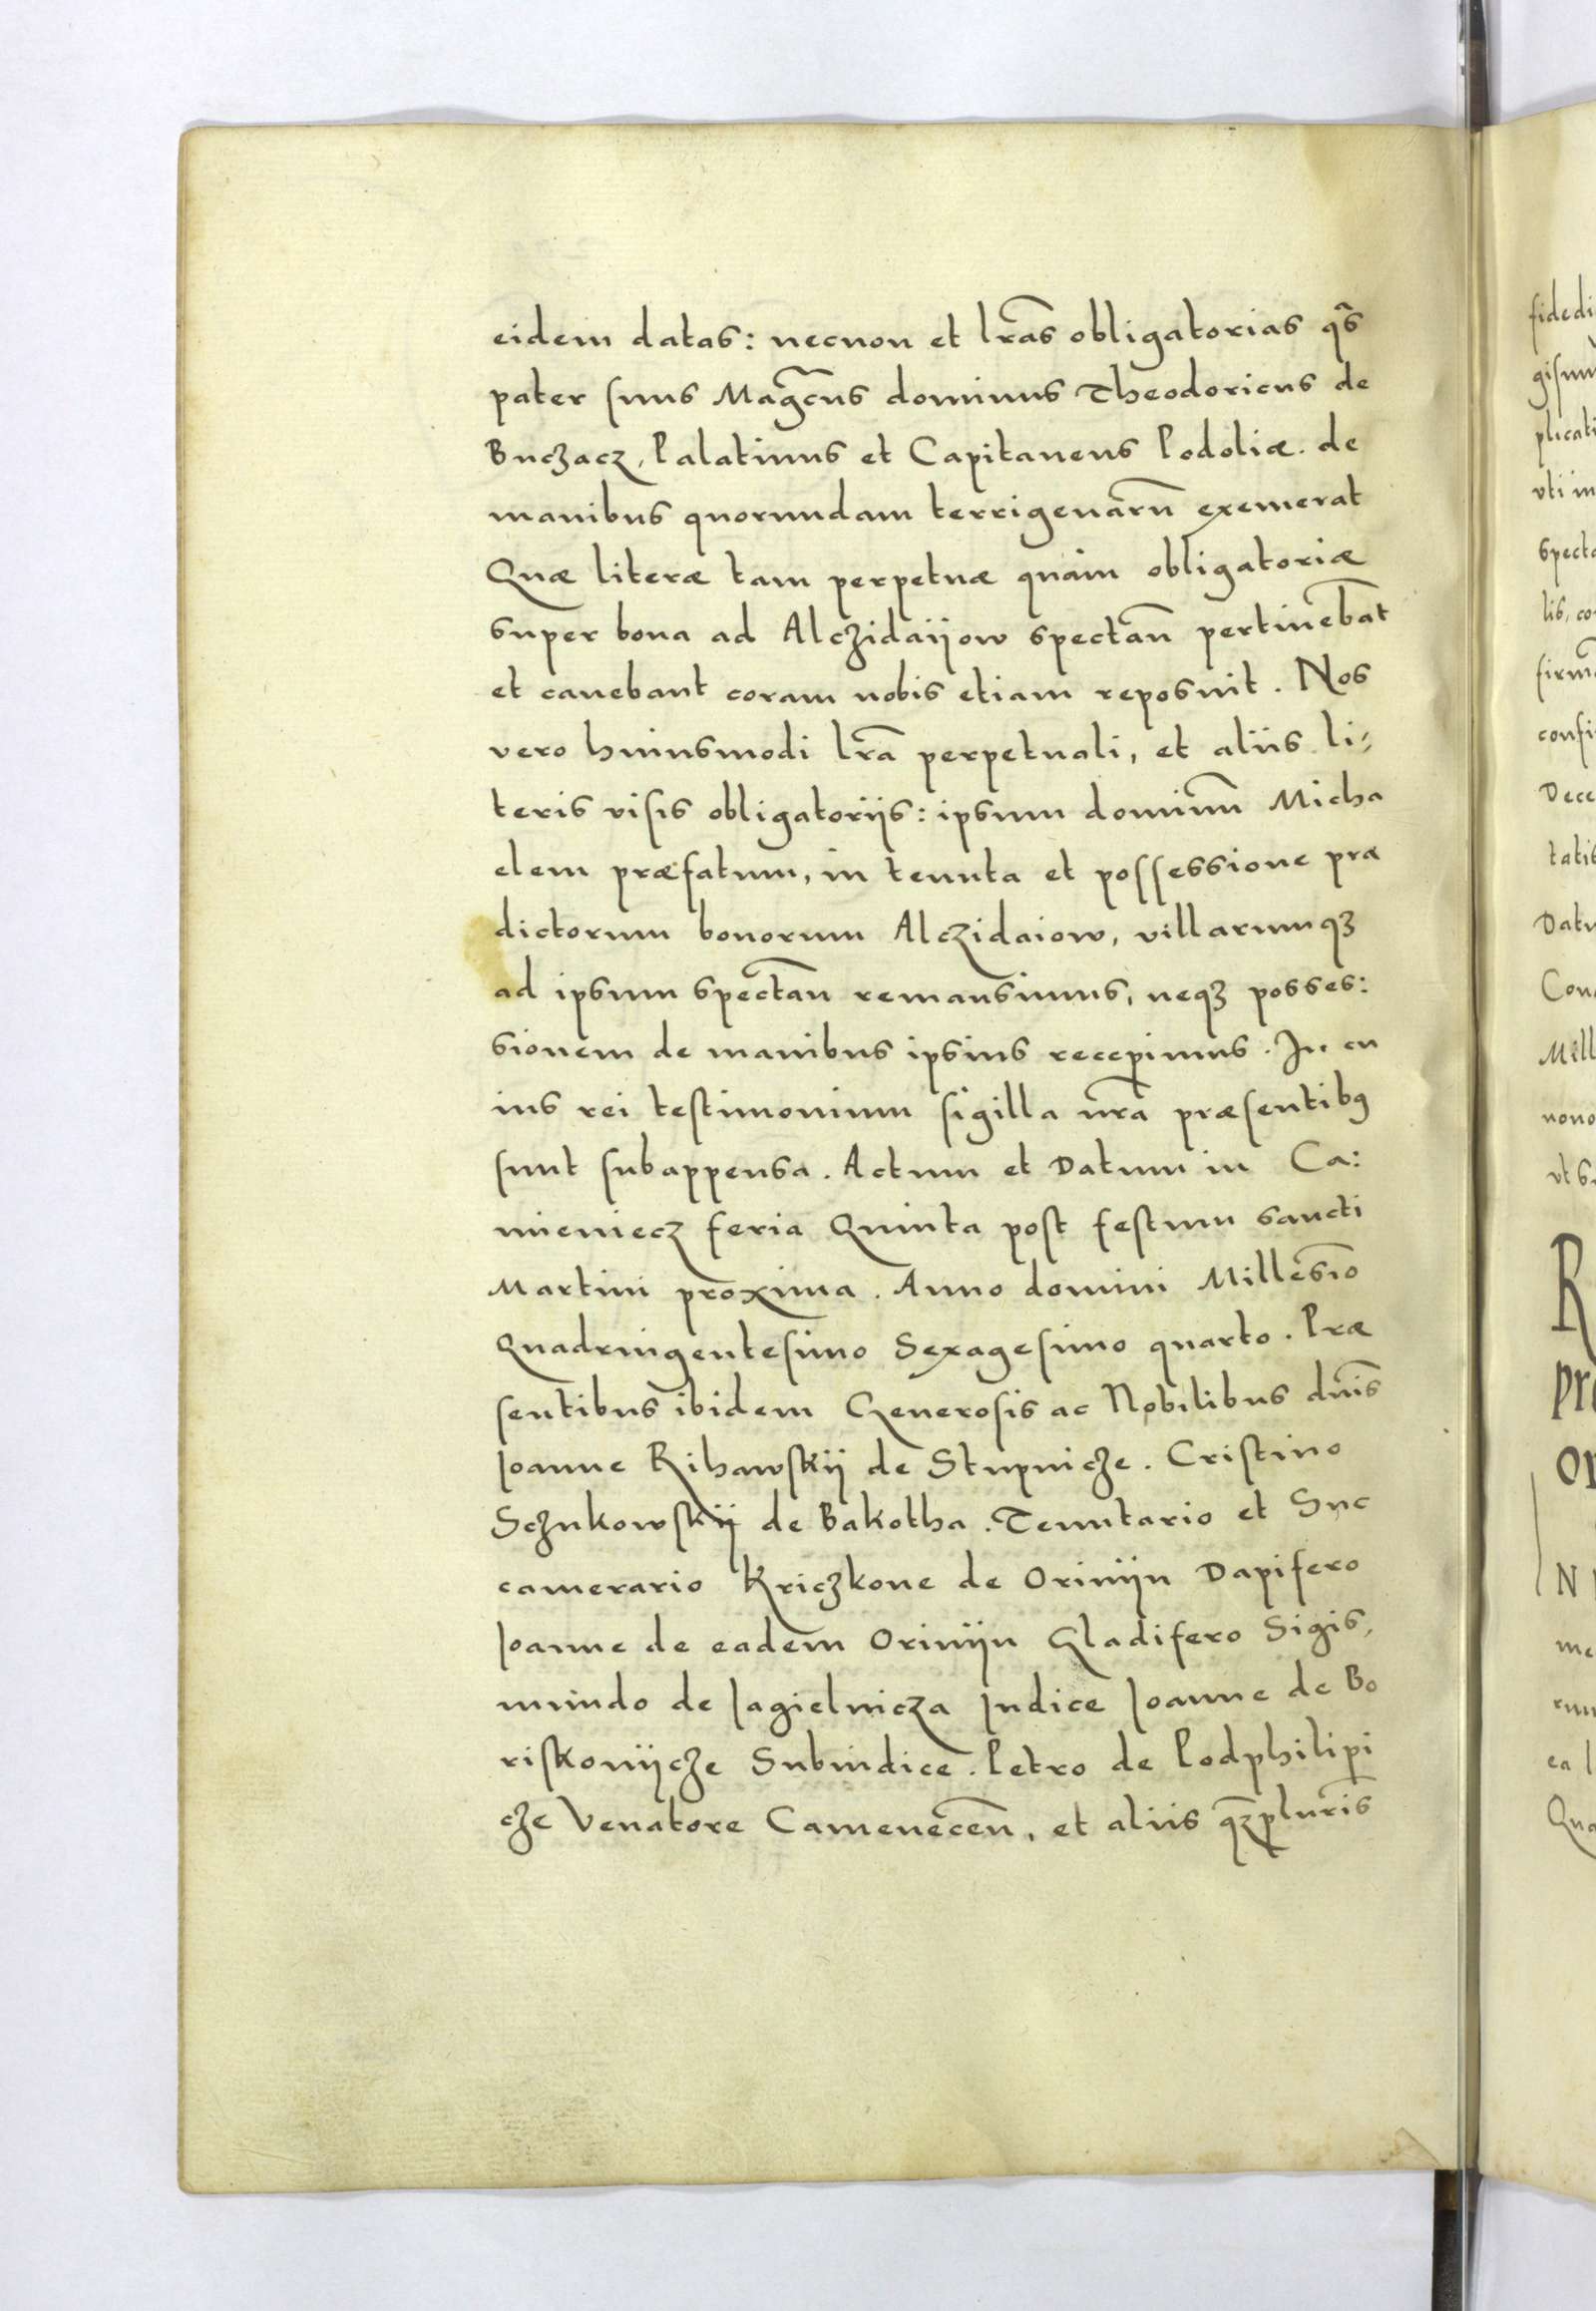 eidem datas: necnon et lr̃as obligatorias qᷓs
pater suus Mag̃cus dominus Theodoricus de
Buczacz, Palatinus et Capitaneus Podoliæ. de
manibus quorundam terrigenarũ exemerat
Quæ literæ tam perpetuæ quàm obligatoriæ
super bona ad Alczidaijow spectañ pertinebãt
et canebant coram nobis etiam reposuit. Nos
vero huiusmodi lr̃a perpetuali, et aliis li-
teris visis obligatoriis: ipsum dominũ Micha
elem præfatum, in tenuta et possessione præ
dictorum bonorum Alczidaiow, villarumqꝫ
ad ipsum spectañ remansimus, neqꝫ posses:
sionem de manibus ipsius recepimus. In cu
ius rei testimonium sigilla nr̃a præsentibꝰ
sunt subappensa. Actum et Datum in Ca:
mieniecz feria Quinta post festum sancti
Martini proxima. Anno domini Millesĩo
Quadringentesimo Sexagesimo quarto. Præ
sentibus ibidem Generosis ac Nobilibus dñis
Joanne Rihawskij de Stupnicze. Cristino
Sczukowskij de Bakotha. Tenutario et Suc
camerario Kriczkone de Orinijn Dapifero
Joanne de eadem Orinijn Gladifero Sigis,
mundo de Jagielnicza Judice Joanne de Bo
riskonijcze Subiudice. Petro de Podphilipi
cze Venatore Cameneceñ, et aliis qꝫpluris̃
fidedi
plicati
vti in
specta
lis, co
firmã
confi
Dece
tatis
Datu
Con
Mill
nono
R
pr
or
N
me
rum
ea l
Qua